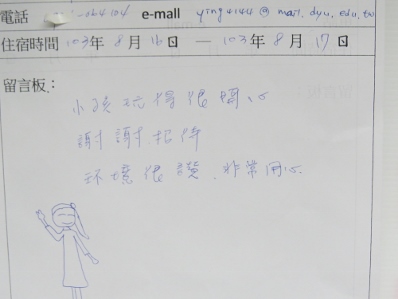 電話 e-mall ying4144@mail.dyu.edu.tw
住宿時間 103年 8月 16日 — 103年 8月 17日
留言板:
小孩玩得很開心
謝謝招待
环境很讚、非常用心